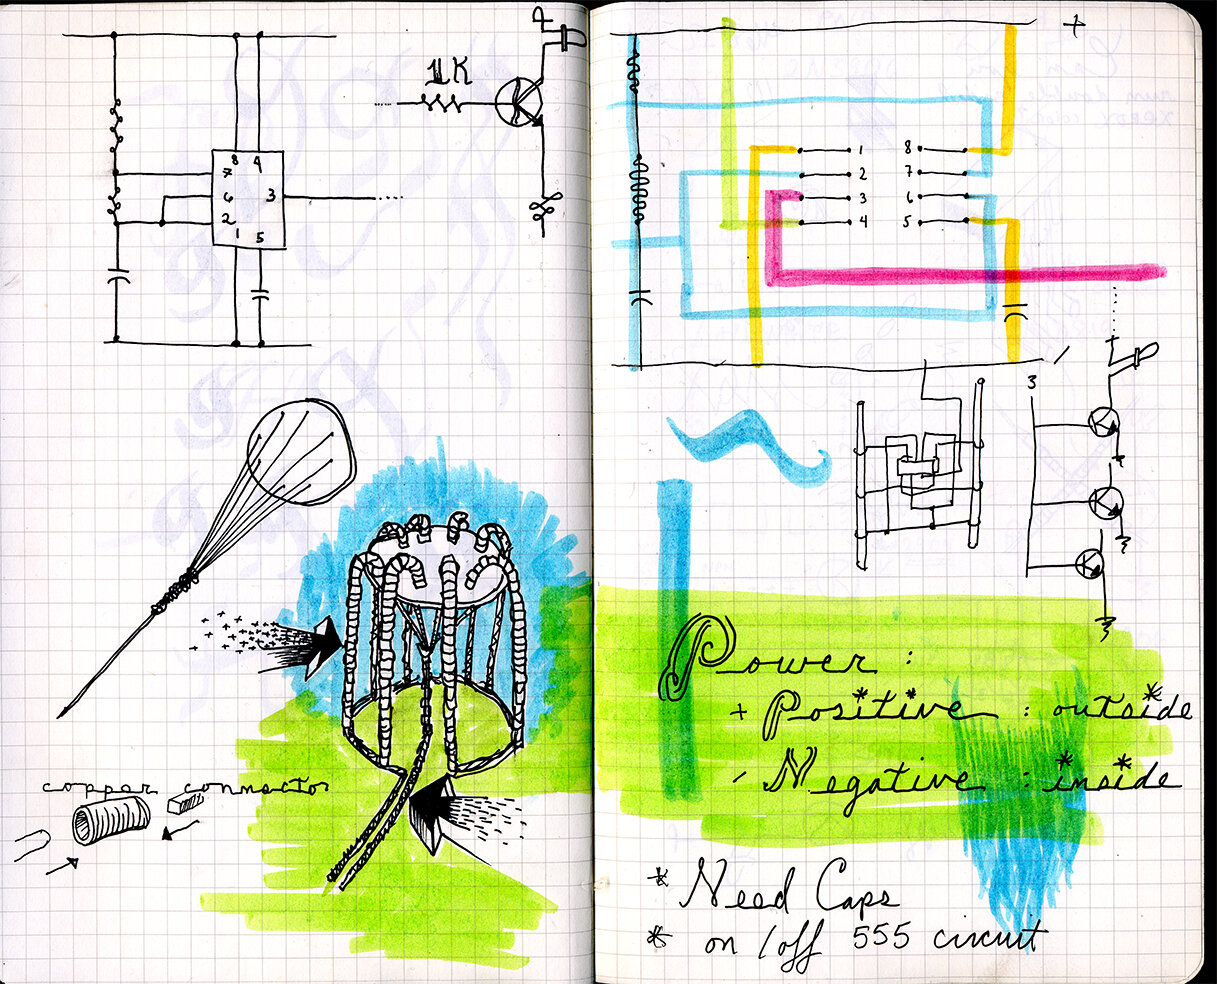 1K
8 4
7
6 3
2
1 5
copper connector
+
1 8
2 7
3 6
4 5
3
Power :
+ Positive : outside
- Negative : inside
* Need Caps
* on/off 555 circuit